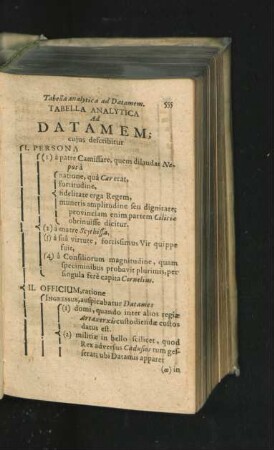 Tabella analytica ad Datamem. 555
TABELLA ANALYTICA
Ad
DATAMEM;
cujus describitur
I. PERSONA
(1) à patre Camissare, quem dilaudat Ne-
pos à
ratione, quâ Car erat,
fortitudine,
fidelitate erga Regem,
muneris amplitudine seu dignitate;
provinciam enim partem Ciliciæ
obtinuisse dicitur.
(2) à matre Scythissa.
(3) à suâ virtute, fortissimus Vir quippe
fuit,
(4) à Consiliorum magnitudine, quam
speciminibus probavit plurimis, per
singula ferè capita Cornelius.
II. OFFICIUM, ratione
Ingressus, auspicabatur Datames
(1) domi, quando inter alios regiæ
Artaxerxis custodiendæ custos
datus est.
(2) militiæ in bello scilicet, quod
Rex adversus Cadusios tum ges-
serat; ubi Datamis apparet
(α) in